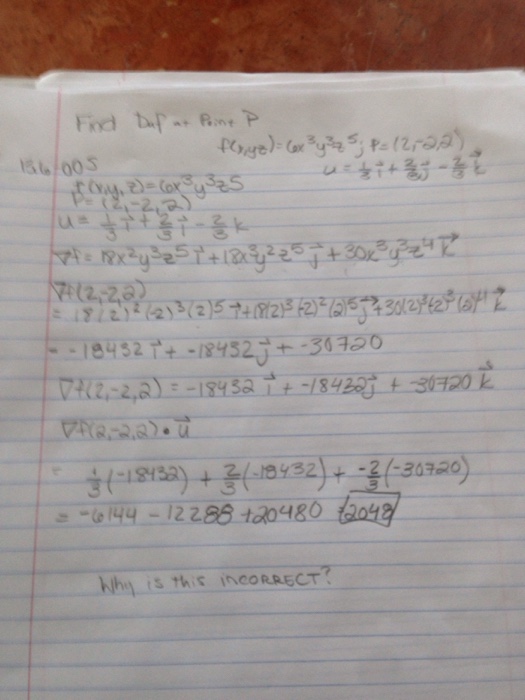 Find Duf at Point P
f(x,y,z)=6x³y³z⁵; P=(2,-2,2)
136-005
u = 1/3 i + 2/3 j - 2/3 k
f(x,y,z)=6x³y³z5
P=(2,-2,2)
u = 1/3 i + 2/3 i - 2/3 k
∇f=18x²y³z⁵ i + 18x³y²z⁵ j + 30x³y³z⁴ k
∇f(2,-2,2)
= 18(2)²(-2)³(2)5 i + 18(2)³(-2)²(2)5 j + 30(2)³(-2)³(2)⁴ k
= -18432 i + -18432 j + -30720
∇f(2,-2,2) = -18432 i + -18432 j + -30720 k
∇f(2,-2,2) • u
= 1/3(-18432) + 2/3(-18432) + -2/3(-30720)
= -6144 - 12288 + 20480 = 2048
Why is this INCORRECT?